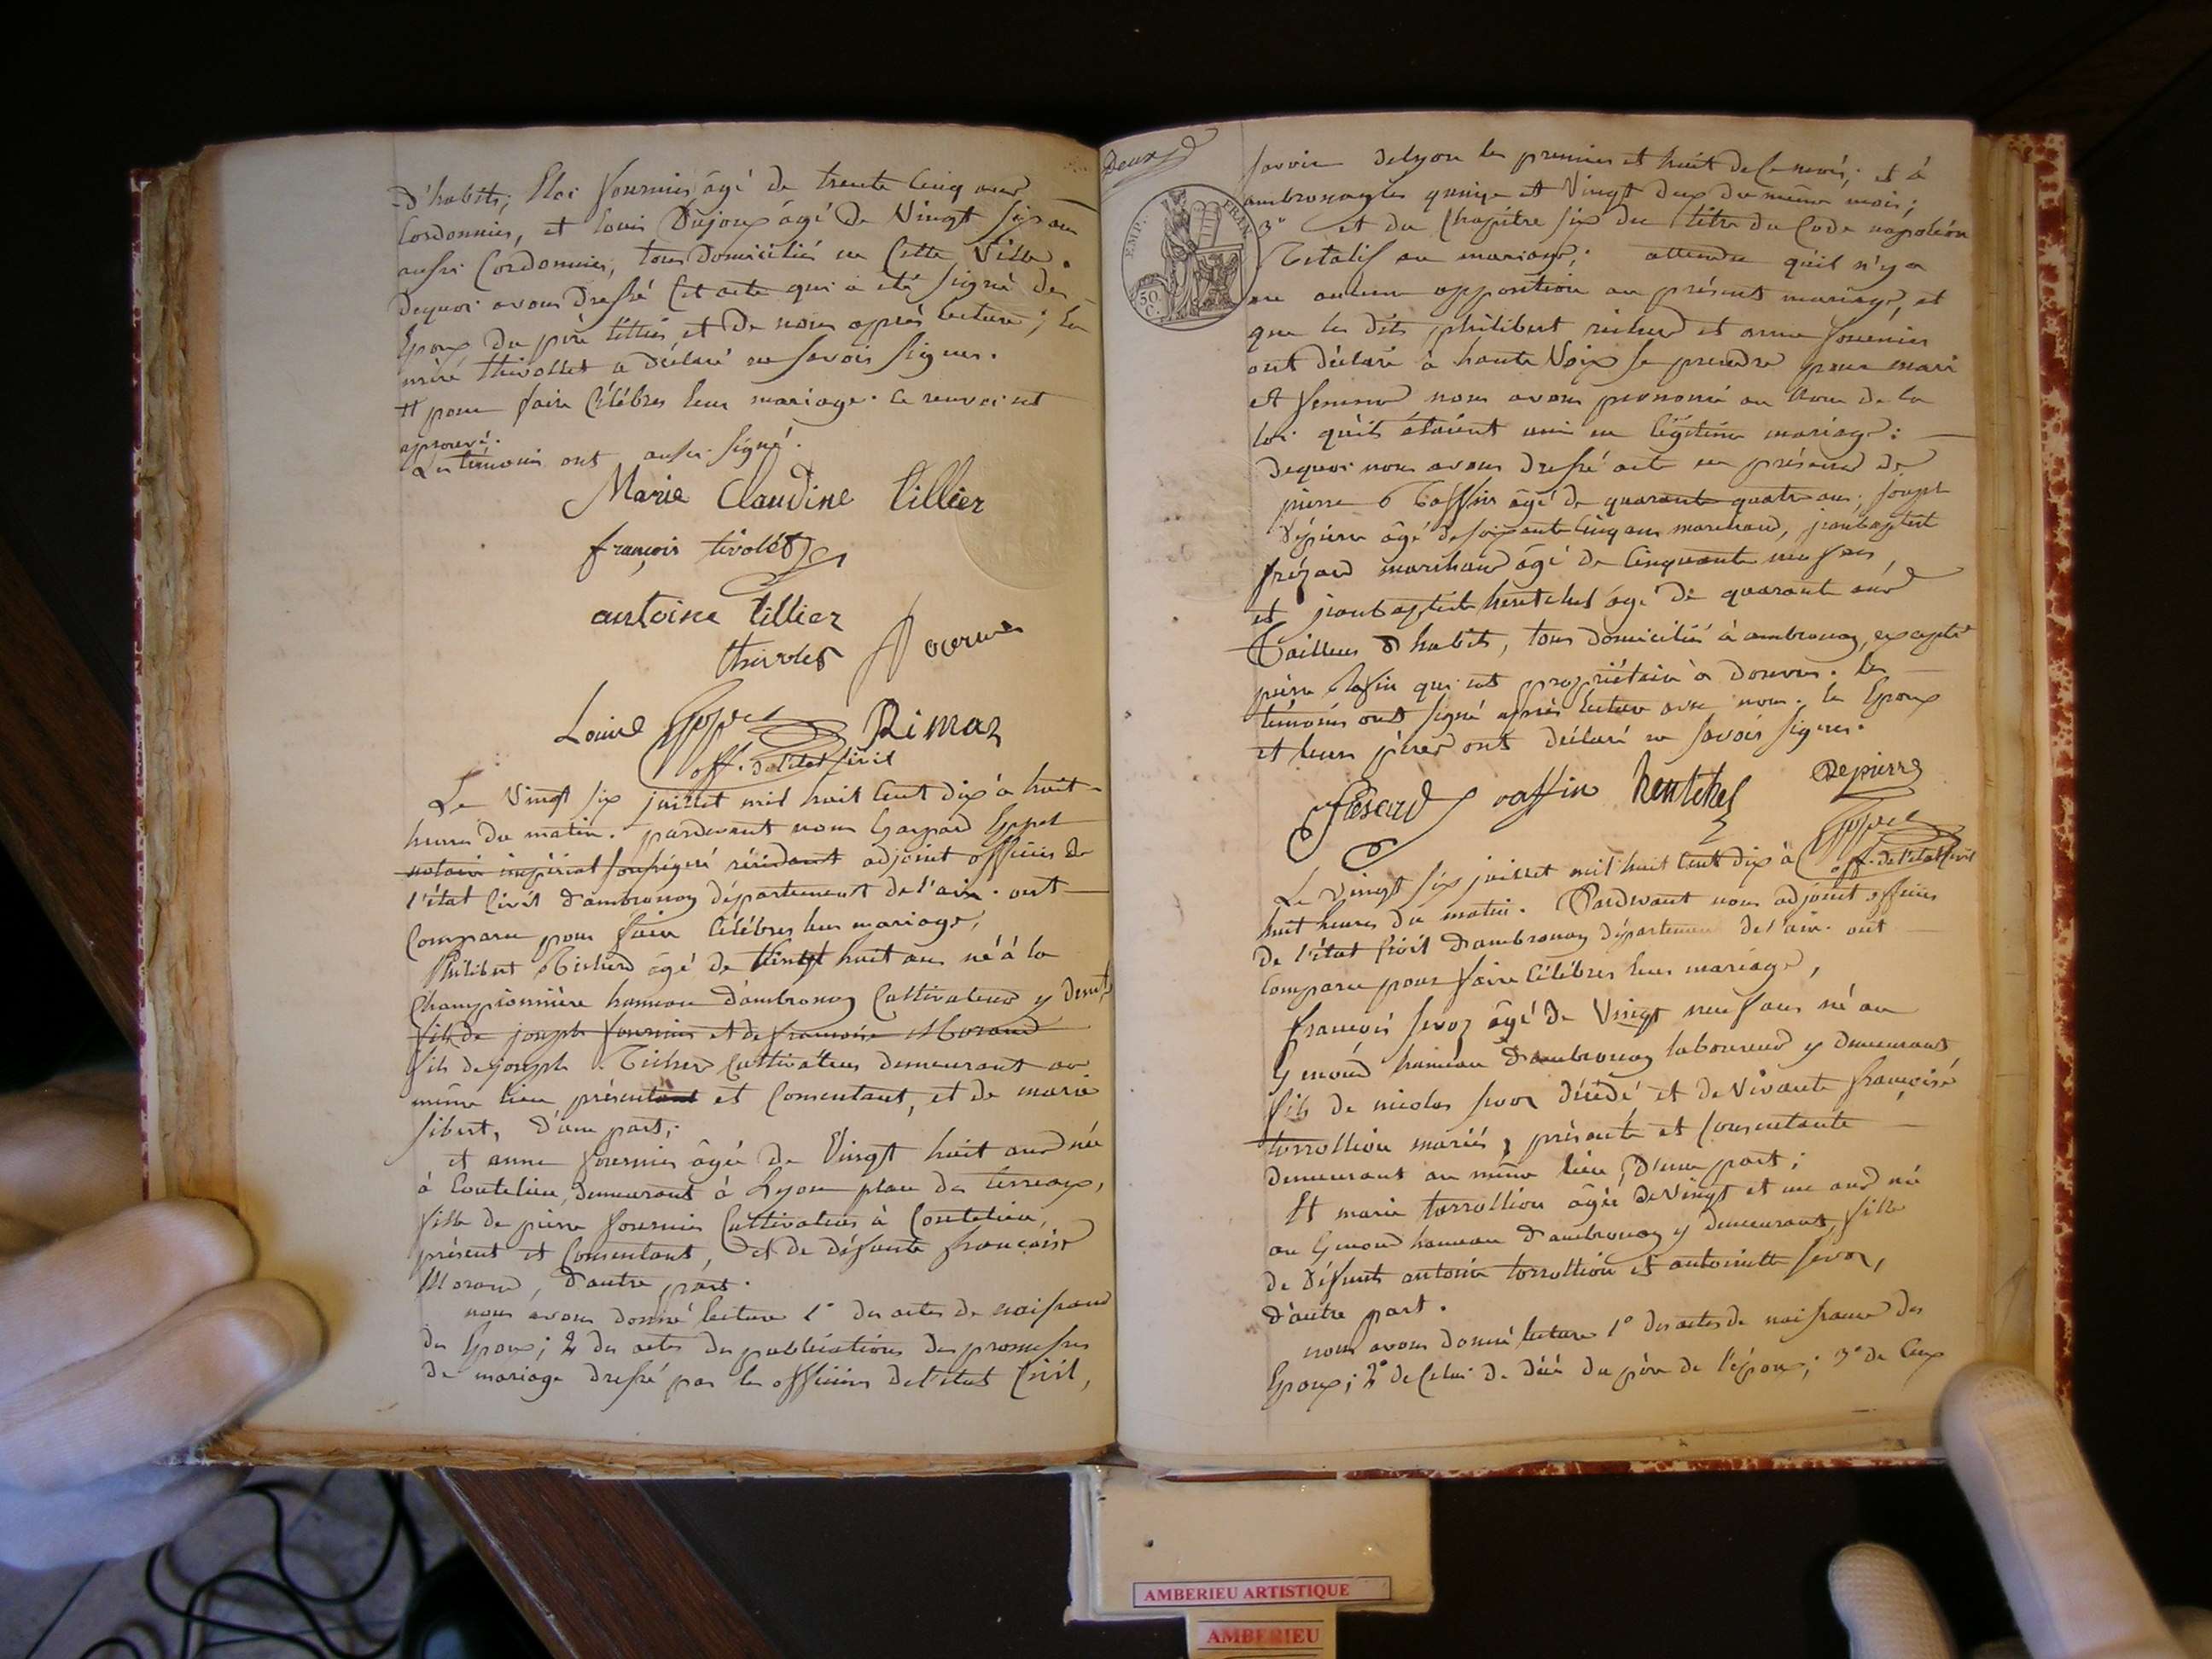 d'habits; Eloi fournier âgé de trente cinq ans
Cordonnier, et louis Dujoux âgé de Vingt six ans
aussi Cordonnier, tous domiciliés en Cette Ville.
dequoi avons dressé Cet acte qui a été signé des
Epoux du père tillier et de nous après lecture; la
mère thivollet a déclaré ne savoir signer.
# pour faire Célébrer leur mariage. Ce renvoi est
aprouvé.
Les témoins ont aussi signé.
Marie Claudine tillier
françois tivolet
antoine tillier
thivolet
Louise
Rimaz
off. de l'etat Civil
Le Vingt six juillet mil huit Cent dix à huit
heures du matin. pardevant nous Gaspard Eppel
notaire impérial soussigné résidant adjoint officier de
l'état Civil d'ambronay département de l'ain. ont
Comparu pour faire Célébrer leur mariage,
Philibert Richerd âgé de Vingt huit ans né à la
Championnière hameau d'ambronay Cultivateur y demt
fils de joseph fournier et de francoise Morand
fils de joseph Richerd Cultivateur demeurant au
même lieu présentant et Consentant, et de marie
sibert, d'une part;
et anne fournier âgée de Vingt huit ans née
à Coutelieu, demeurant à Lyon place des terreaux,
fille de pierre fournier Cultivateur à Coutelieu,
présent et Consentant, et de défunte françoise
Morand, d'autre part.
nous avons donné lecture 1° des actes de naissance
des Epoux; 2 des actes des publications des promesses
de mariage dressé par les officiers de l'etat Civil,
Deux
EMP. FRAN.
50 C.
savoir delyon les premier et huit de Ce mois; et à
ambronay les quinze et Vingt deux du même mois;
3° et du Chapitre six du titre du Code napoléon
Relatif au mariage; attendu qu'il n'y a
eu aucune opposition au présent mariage, et
que les dits philibert richerd et anne fournier
ont déclaré à haute Voix se prendre pour mari
et femme nous avons prononcé au nom de la
loi qu'ils étaient uni en légitime mariage:
dequoi nous avons dressé acte en présence de
pierre Raffin âgé de quarante quatre ans; joseph
dépierre âgé de soixante cinq ans marchand, jeanbaptiste
frézard marchand âgé de Cinquante neuf ans,
et jeanbaptiste hentchel âgé de quarante ans
Tailleur d'habits, tous domiciliés à ambronay, excepté
pierre Rafin qui est propriétaire à douvres. les
témoins ont signé après lecture avec nous. les Epoux
et leurs pères ont déclaré ne savoir signer.
raffin hentchel Depierre
off. de l'etat Civil
Le Vingt six juillet mil huit Cent dix à
huit heures du matin. Pardevant nous adjoint officier
de l'état Civil d'ambronay département de l'ain. ont
Comparu pour faire Célébrer leur mariage,
françois sevoz âgé de Vingt neuf ans né au
Genoud hameau d'ambronay laboureur y demeurant
fils de nicolas sevoz décédé et de Vivante françoise
torrollion mariés, présente et Consentante
demeurant au même lieu, d'une part;
Et marie torrollion âgée de Vingt et un ans née
au Genoud hameau d'ambronay y demeurant, fille
de défunts antoine torrollion et antoinette sevoz,
d'autre part.
nous avons donné lecture 1° des actes de naissance des
Epoux; 2° de Celui de décé du père de l'époux; 3° de Ceux
AMBERIEU ARTISTIQUE
AMBERIEU